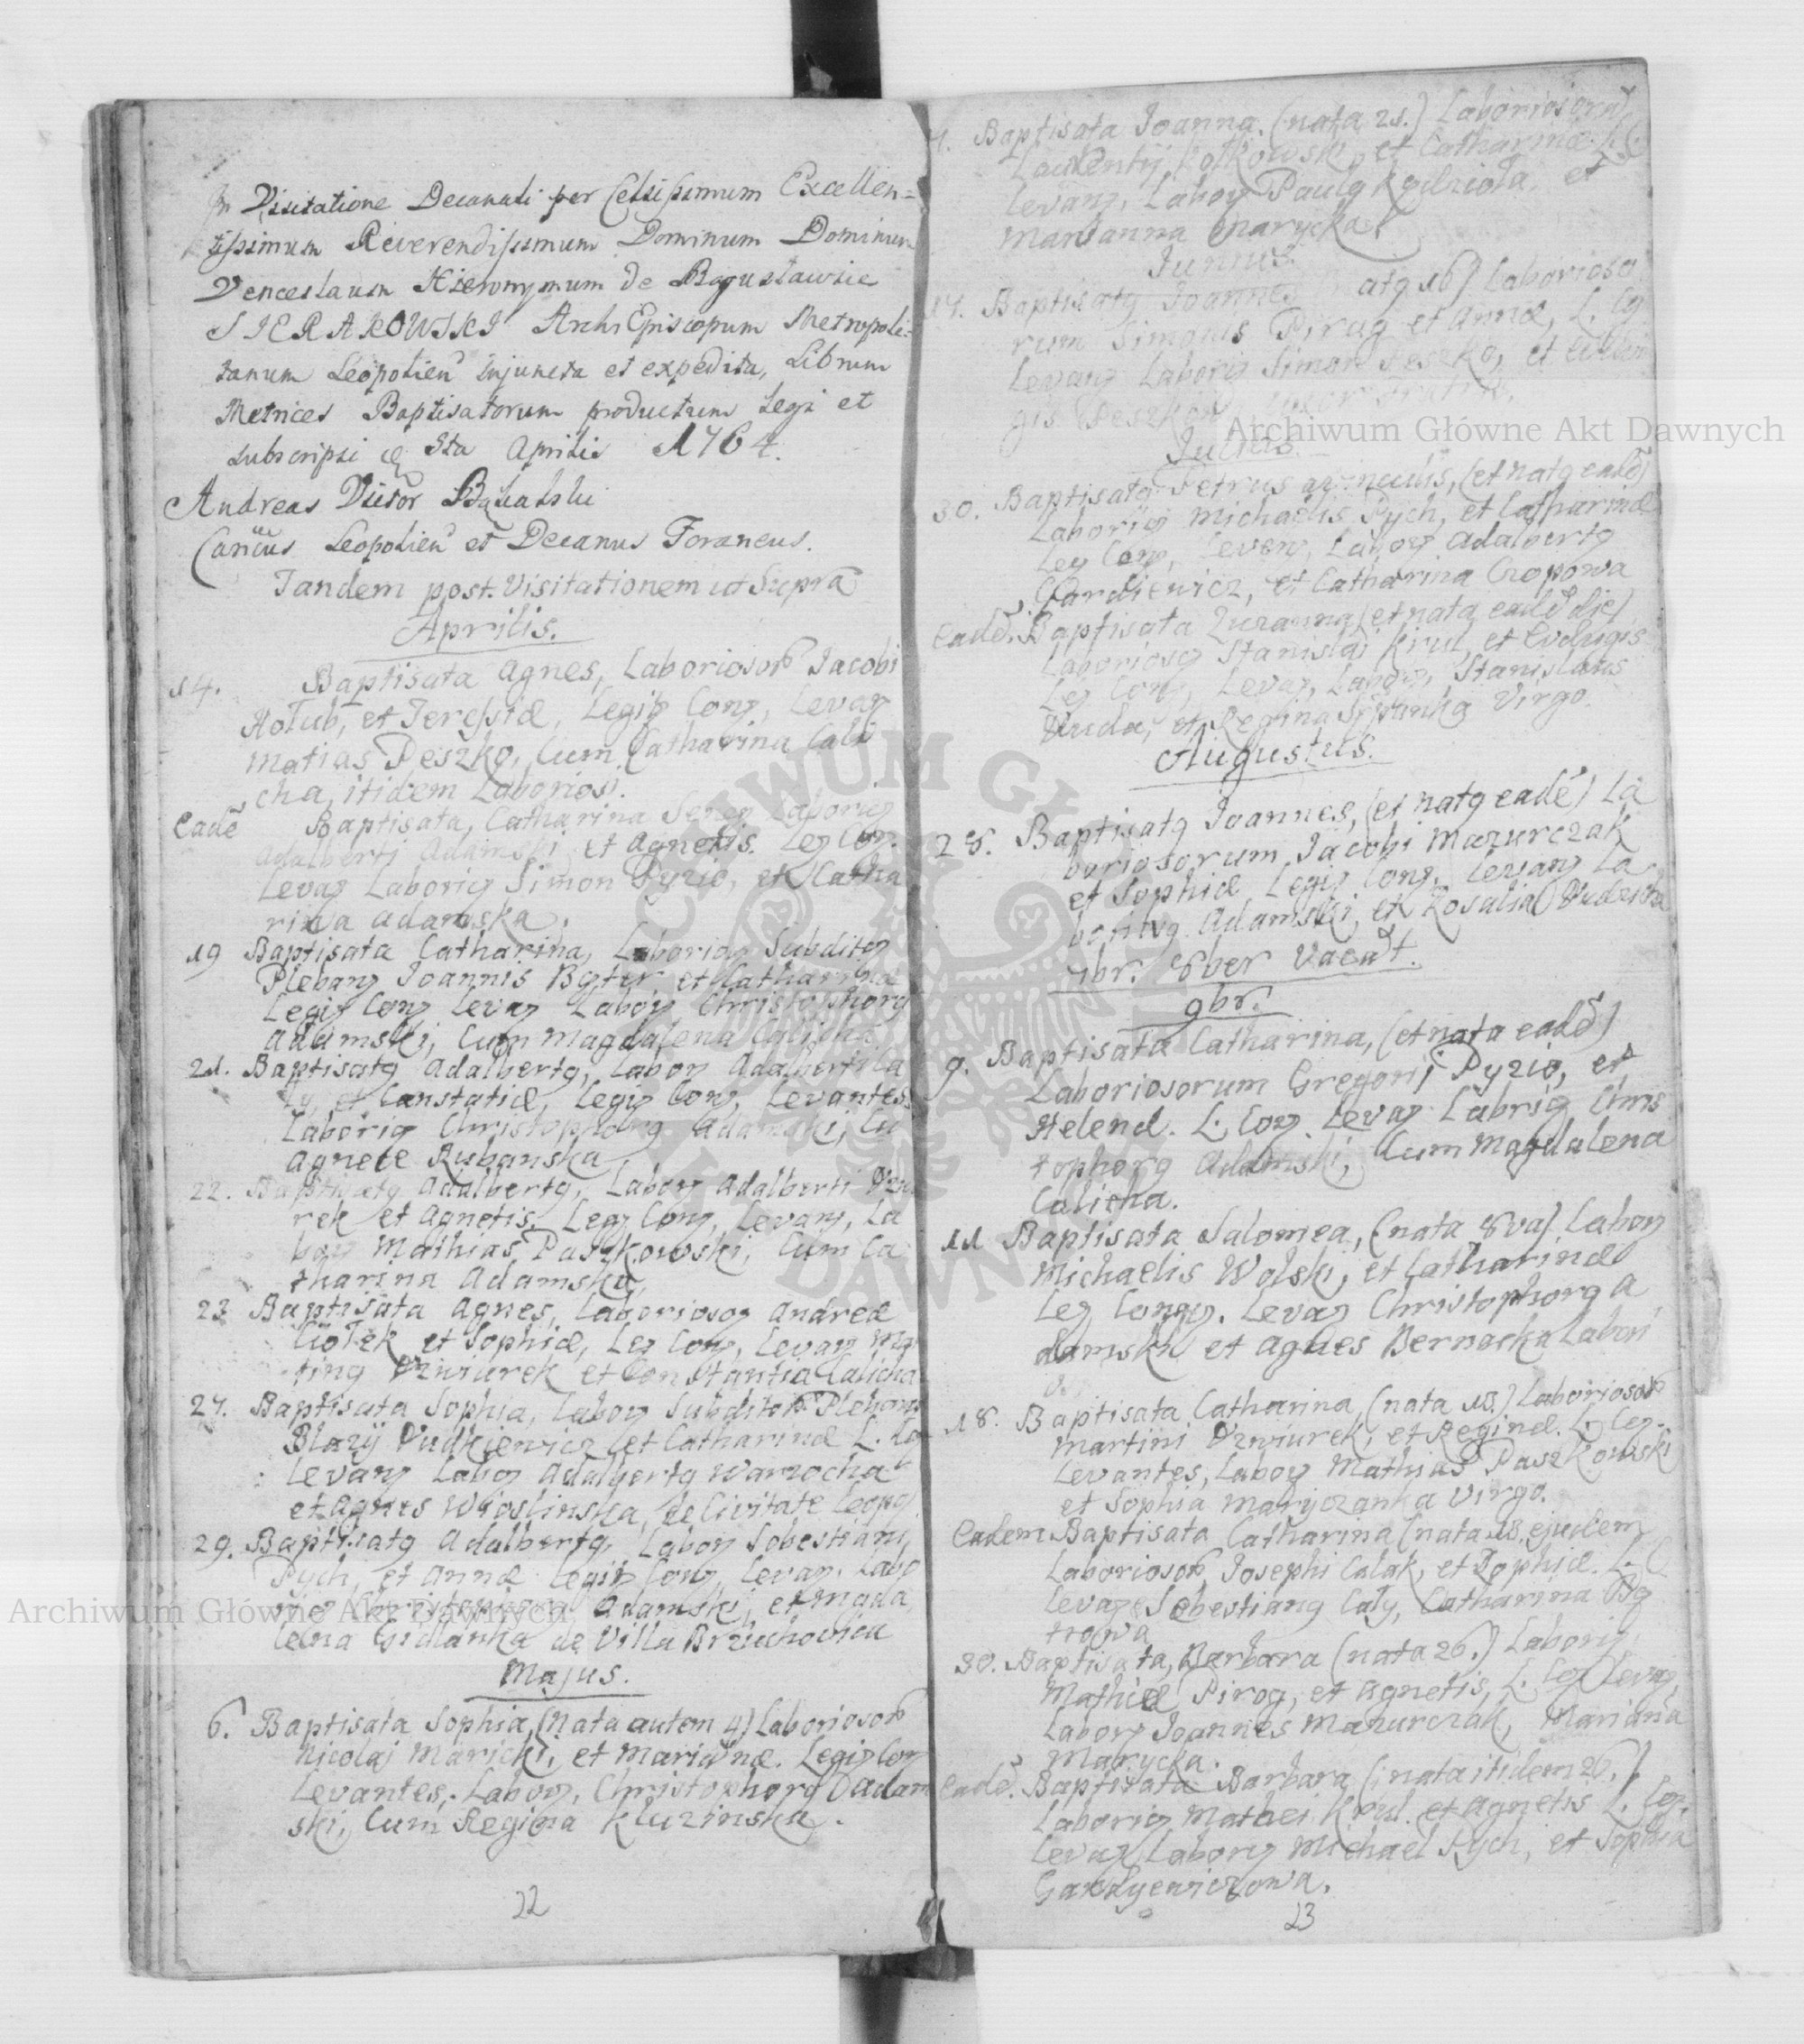 In Visitatione Decanali per Celsissimum Excellen=
tissimum Reverendissimum Dominum Dominum
Venceslaum Hieronymum de Bogusławice
SIERAKOWSKI Archi Episcopum Metropoli=
tanum Leopolien injuncta et expedita, Librum
Metrices Baptisatorum productum legi et
subscripsi 8va Aprilis 1764.
Andreas Victor
Cancus Leopolien et Decanus Foraneus.
Tandem post Visitationem ut Supra
Aprilis.
14. Baptisata Agnes, Laboriosorum Jacobi
Hołub, et Teressiæ, Legit Conj, Levan
Matias Peszko, Cum Catharina Cali
cha, itidem Laboriosi.
Eadē Baptisata, Catharina Laborios
Adalberti Adamski et Agnetis. Leg Con.
Levan Laborios Simon Pyzio, et Catha
rina Adamska.
19 Baptisata Catharina, Laborios Subditor
Plebans Joannis et Catharinæ
Legit Conj Levan Labor Christophorus
Adamski, Cum Magdalena Calicha
21. Baptisatus Adalbertus, Labor Adalberti Ca
ły, et Constatiæ, Legit Conj, Levantes
Laborios Christophorus Adamski, Cu
Agnete Rubanska
22. Baptisatus Adalbertus, Labor Adalberti Dzwi
rek et Agnetis, Leg Conj, Levan, La
bor Mathias Paszkowski, Cum Ca
tharina Adamska,
23 Baptisata Agnes, Laborioso Andreæ
Ciołek et Sophiæ, Leg Conj, Levan Mar
tinus Dzwiurek et Constantia Calicha
27. Baptisata Sophia, Labor Subditor Plebans
Blazij Dudkiewicz et Catharinæ L. Co
Levan Labor Adalbertus Warzocha
et Agnes Wioslinska, de Civitate Leopo
29. Baptisatus Adalbertus, Labor Sobestiani
Pych, et Annæ Legit Conj, Levan, Labo
rios Christophorus Adamski, et Magda
lena Gidlanka de Villa Brzuchovica
Majus.
6. Baptisata Sophia, (Nata autem 4) Laboriosor
Nicolai Maricki, et Mariañæ. Legit Con
Levantes, Labor, Christophorus Adam
ski, Cum Regina Kluzinska.
22
Baptisata Joanna, (nata 21.) Laboriosoru
Laurentij et Catharinæ. L. C.
Levan, Labor Paulus et
Marianna Marycka.
Junius
17. Baptisatus Joannes natus 16) Laborioso
rum Simonis Pirug et Annæ, L. Co
Levan Laborios Simon Peszko, et
Julius.
30. Baptisatus Petrus ad vincula, (et natus eadē)
Laborios Michaelis Pych, et Catharinæ
Leg Conj, Levan, Labor Adalbertus
Gardiewicz, et Catharina Cropowa
Eadē. Baptisata Zuzanna (et nata eadē die)
Laborioso Stanislai Krul, et Evdvigis
Leg Conj, Levan, Labor, Stanislaus
Duda, et Regina Virgo.
Augustus.
28. Baptisatus Joannes, (et natus eadē) La
boriosorum Jacobi Mazurczak
et Sophiæ Legit Conj. Levan La
Adamski et Rosalia
7br. 8ber Vacāt.
9br.
9. Baptisata Catharina, (et nata eadē)
Laboriosorum Gregorij Pyzio, et
Helenæ. L. Con. Levan Labrios Chris
tophorus Adamski, Cum Magdalena
Calicha.
11 Baptisata Salomea, (nata 8va). Labor
Michaelis Wolski, et Catharinæ
Leg Conj. Levan Christophorus A
damski et Agnes Bernacka Labori
18. Baptisata Catharina, (nata 18.) Laboriosor
Martini Dzwiurek, et Reginæ. L. Con.
Levantes, Labor Mathias Paszkowski
et Sophia Maryczanka Virgo.
Eadem Baptisata Catharina (nata 18. ejusdem
Laboriosor Josephi Calak, et Sophiæ. L. C
Levan Sobestianus Cały, Catharina
trowa
30. Baptisata, Barbara (nata 26.) Laborios
Mathiæ Pirog, et Agnetis, L. Con Levan,
Labor Joannes Mazurczak, Marianna
Marycka.
Eadē. Baptisata Barbara, (nata itidem 26.)
Laborios Mathei Krul. et Agnetis L. Con.
Levan Labor Michael Pych, et Sophia
Gardyewiczowa.
23
Archiwum Główne Akt Dawnych
Archiwum Główne Akt Dawnych